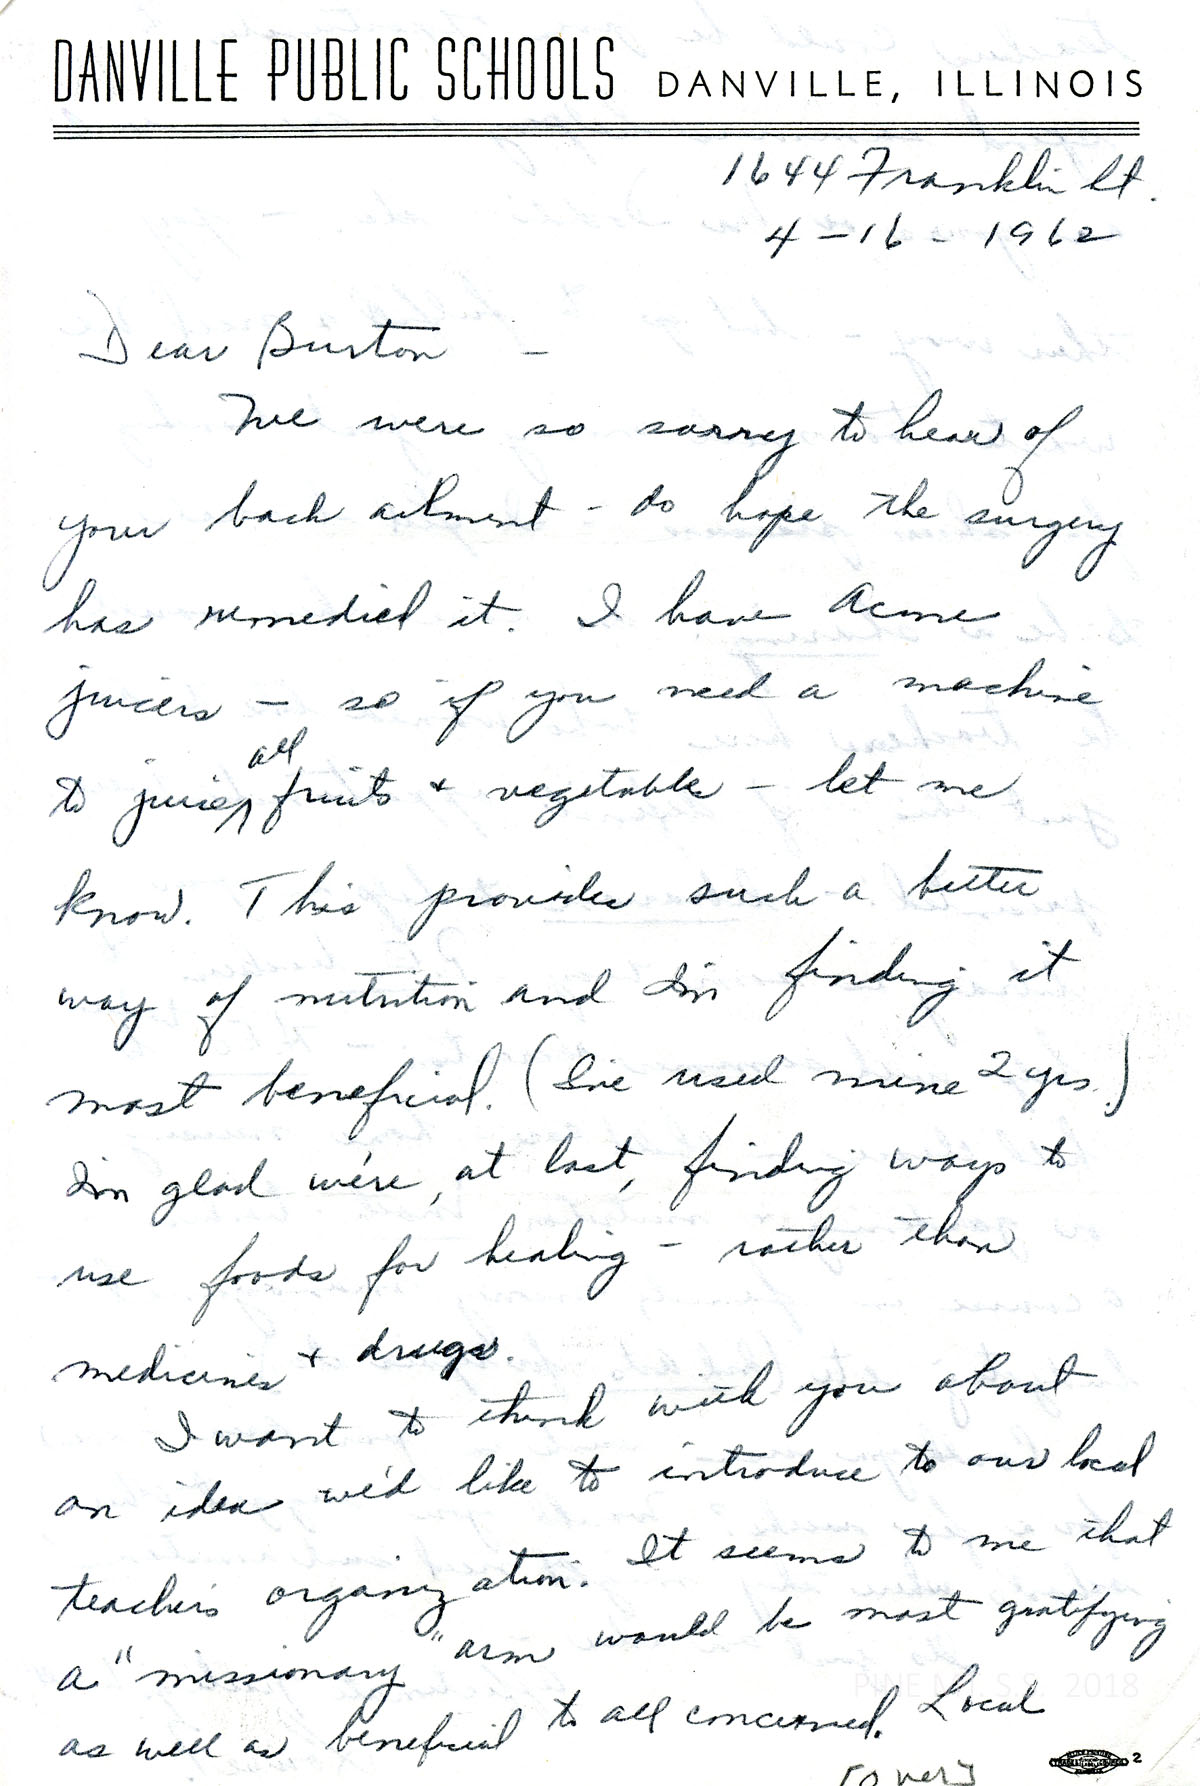 DANVILLE PUBLIC SCHOOLS DANVILLE, ILLINOIS
1644 Franklin St.
4-16-1962
Dear Burton -
We were so sorry to hear of
your back ailment - do hope the surgery
has remedied it. I have Acme
juicers - so if you need a machine
all
to juice fruits + vegetable - let me
know. This provides such a better
way of nutrition and I'm finding it
most beneficial. (I've used mine 2 yrs.)
I'm glad we're, at last, finding ways to
use foods for healing - rather than
medicines + drugs.
I want to think with you about
an idea we'd like to introduce to our local
teachers organization. It seems to me that
a "missionary" arm would be most gratifying
as well as beneficial to all concerned. Local
[over]
2